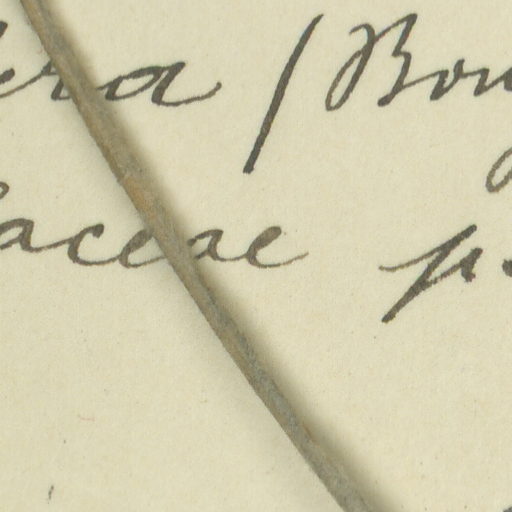 era / Bon
aceae p.